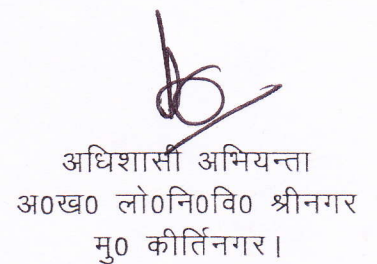 अधिशासी अभियन्ता
अ०ख० लो०नि०वि० श्रीनगर
मु० कीर्तिनगर।